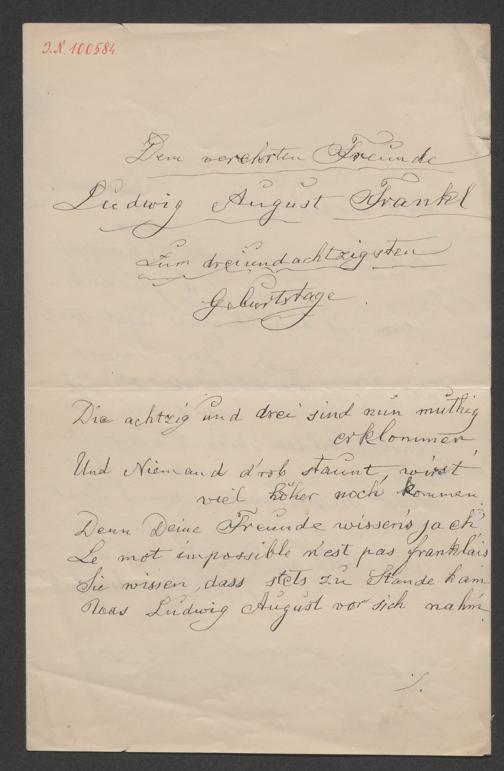 J.N. 100584
Dem verehrten Freunde
Ludwig August Frankl
Zum dreiundachtzigsten
Geburtstage.
Die achtzig und drei sind nun muthig
erklommen
Und Niemand d'rob staunt, wirst
viel höher noch kommen,
Denn Deine Freunde wissen's ja eh'
Le mot impossible n'est pas franklais
Sie wissen, dass stets zu Stande kam
Was Ludwig August vor sich nahm
./.